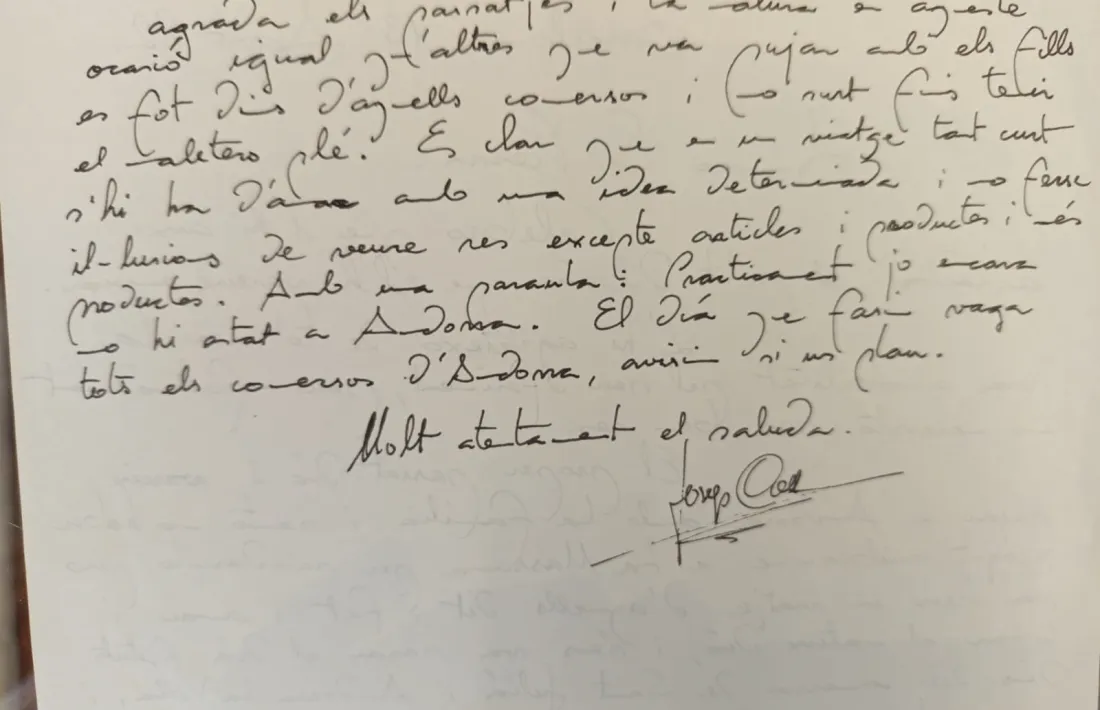 agrada els paisatjes i la natura en aqueste
ocasió igual q'altres que va pujar amb els fills
es fot dins d'aquells comersos i no surt fins tenir
el maletero plé. Es clar que en un viatge tant curt
s'hi ha d'anar amb una idea determinada i no ferse
il-lusions de veure res excepte articles i productes i més
productes. Amb una paraula: Practicament jo encara
no hi estat a Andorra. El día que fasin vaga
tots els comersos d'Andorra, avisin si us plau.
Molt atentament el saluda.
Josep